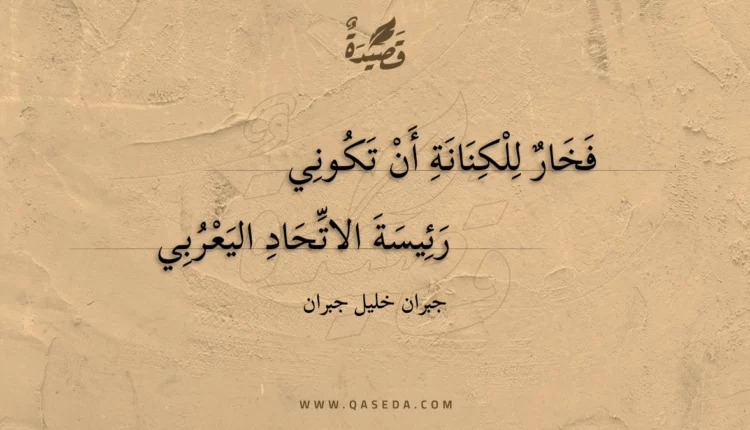 قَصِيدَةٌ
فَخَارٌ لِلْكِنَانَةِ أَنْ تَكُونِي
رَئِيسَةَ الاتِّحَادِ اليَعْرُبِي
جبران خليل جبران
WWW.QASEDA.COM